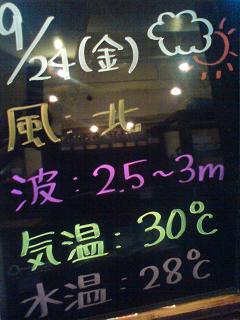 9/24(金)
風 北
波:2.5~3m
気温:30℃
水温:28℃